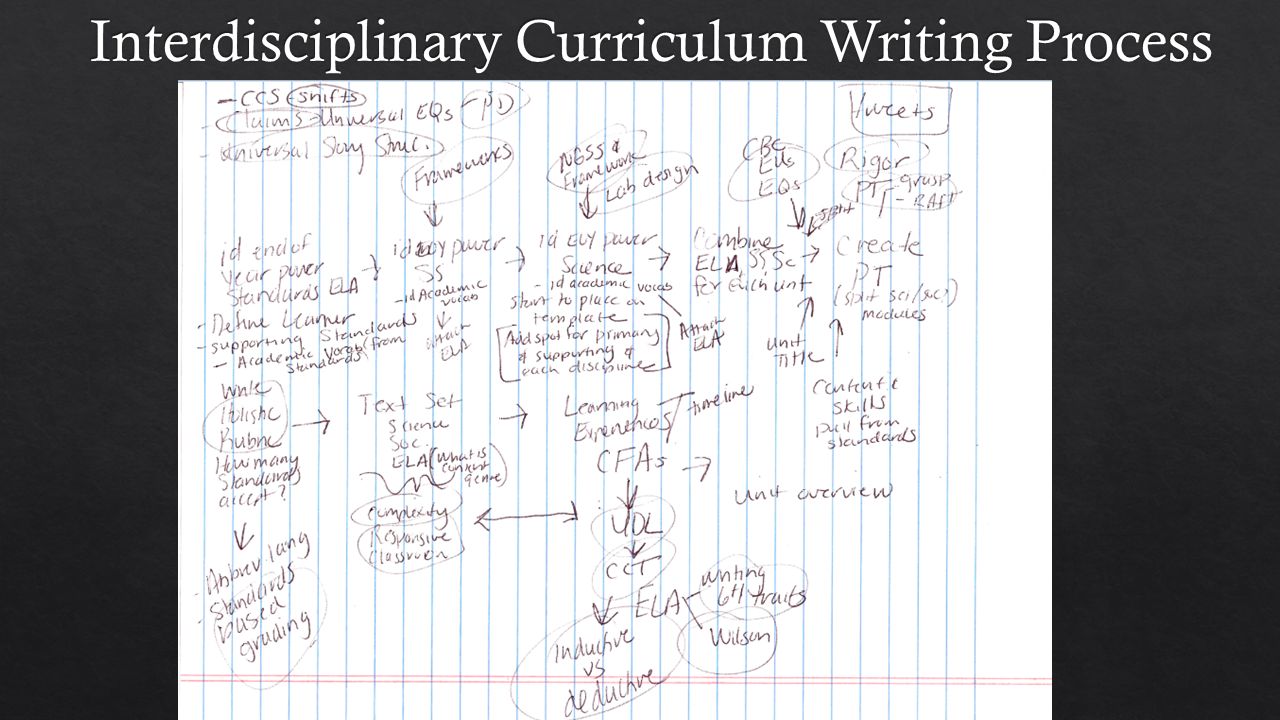 Interdisciplinary Curriculum Writing Process
- CCS shifts
- Claims - Universal EQs - PD
- Universal Story Struc.
Hurcets
Frameworks
NGSS &
Framework
Lab design
CBC
EUs
EQs
Rigor
PT grasp
- RAFT
id end of
year power
Standards ELA
- Define Learner
- supporting Standards
- Academic vocab from
Standards
id EOY power
SS
- id Academic
vocab
attach
ELA
id EOY power
Science
- id academic vocab
start to place on
template
Add spot for primary
& supporting &
each discipline
Attach
ELA
Combine
ELA, SS, Sc
for each unit
unit
Title
Create
PT
(split sci/soc?)
modules
Write
Holistic
Rubric
How many
Standards
accept?
Text Set
Science
Soc.
ELA (what is
content
genre)
Learning
Experiences
timeline
CFAs
Content &
Skills
pull from
standards
unit overview
complexity
Responsive
Classroom
UDL
CCT
ELA
writing
6+1 traits
Wilson
Inductive
vs
deductive
- Abbrev lang
- Standards
based
grading